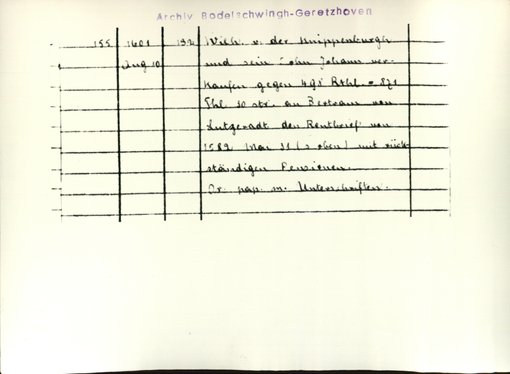 Archiv Bodelschwingh-Geretzhoven
155 1601 192 Wilh. v. der Knippenburgh
Aug 10. und sein Sohn Johann ver-
kaufen gegen 498 Rthl. = 871
Thl. 10 str. an Bertram von
Lutzeradt den Rentbrief von
1582 Mai 31 (s. oben) mit rück-
ständigen Pensionen.
Or. pap. m. Unterschriften.